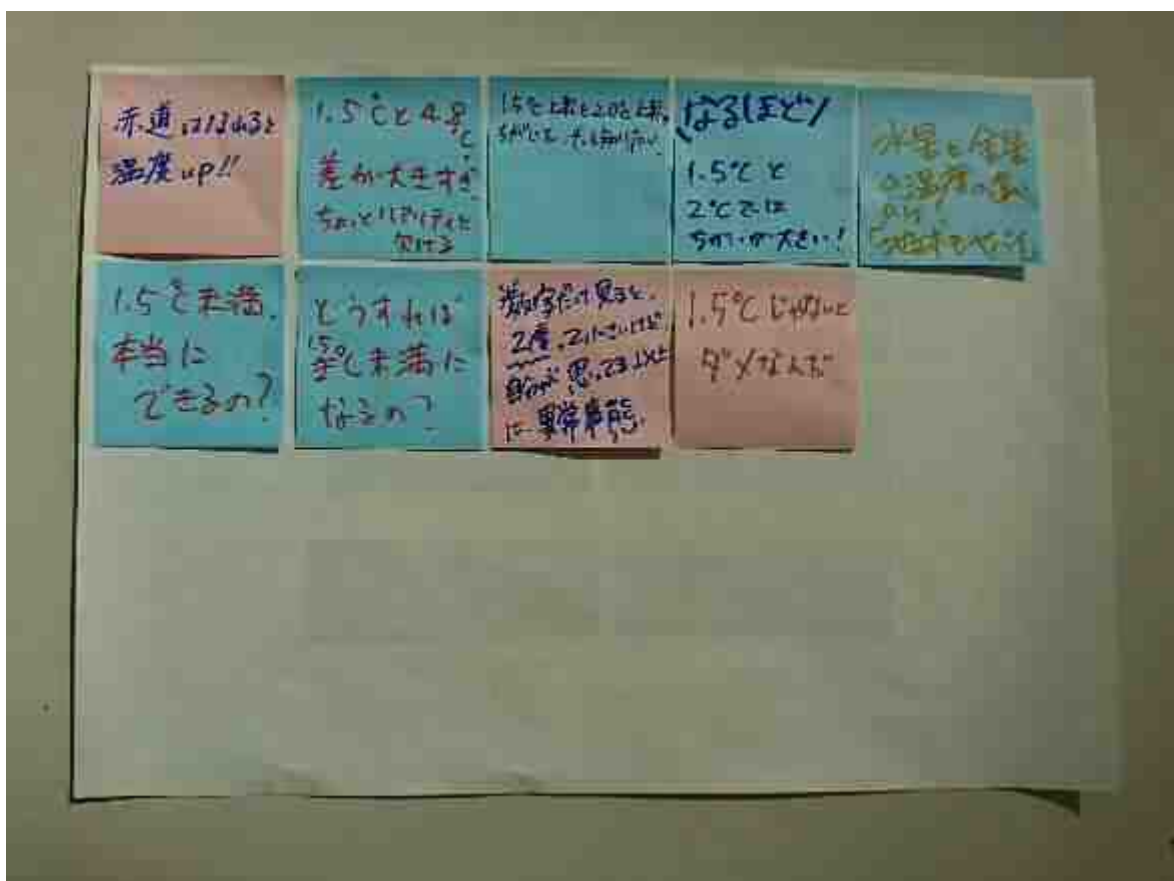 赤道はなれると
温度up!!
1.5℃と4.8℃
差が大きすぎ
ちょっとリアリティに
欠ける
1.5℃上昇と2.0℃上昇の
ちがいを、もっと知りたい。
なるほど!
1.5℃と
2℃では
ちがいが大きい!
水星と金星
の温度の違い
1.5℃未満、
本当に
できるの?
どうすれば
1.5℃未満に
なるの?
数字だけ見ると、
2度って小さいけど
自分が思ってる以上に
は異常事態。
1.5℃じゃないと
ダメなんだ